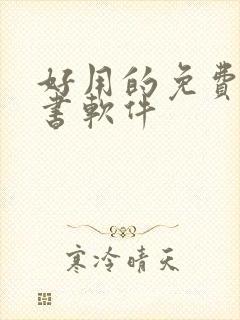 好用的免費
書軟件
寒冷晴天